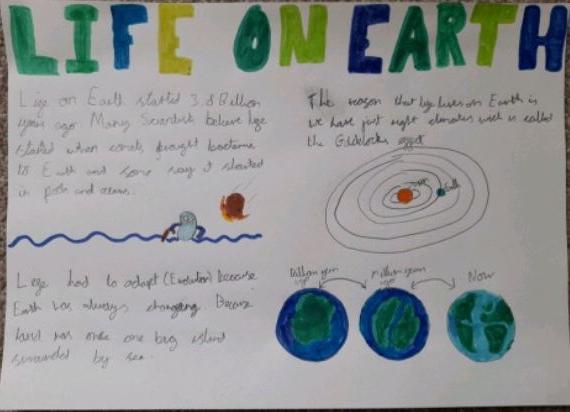 LIFE ON EARTH
Life on Earth started 3.8 Billion
years ago. Many Scientists believe life
started when comets brought bacteria
to Earth and some say it started
in pools and oceans.
The reason that life lives on Earth is
we have just right climates wich is called
the Goldilocks effect
Sun
Earth
Life had to adapt (Evolution) because
Earth was always changing. Because
land was once one big island
surrounded by sea.
Billion years ago
million years ago
Now